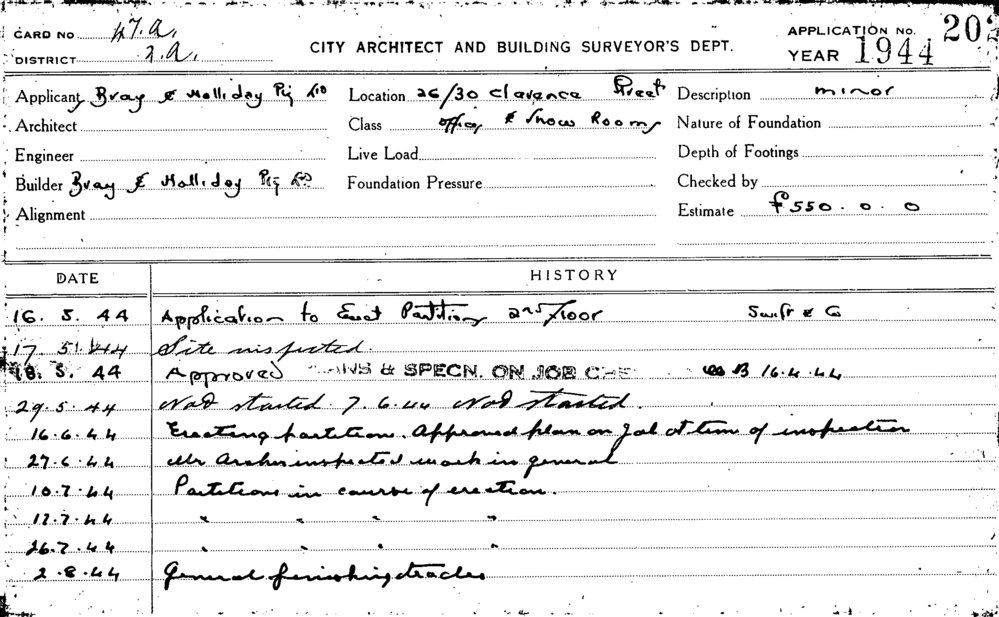 CARD NO 47.A.
DISTRICT 2.A.
CITY ARCHITECT AND BUILDING SURVEYOR'S DEPT.
APPLICATION NO. 202
YEAR 1944
Applicant Bray & Holliday Pty Ltd
Location 26/30 Clarence Street
Description minor
Architect
Class offices & Show Rooms
Nature of Foundation
Engineer
Live Load
Depth of Footings
Builder Bray & Holliday Pty Ltd
Foundation Pressure
Checked by
Alignment
Estimate £550.0.0
DATE HISTORY
16. 5. 44 Application to Erect Partitions 2nd Floor
17 5 44 Site inspected.
18. 5. 44 Approved PLANS & SPECN. ON JOB 16.4.44
29.5.44 Not started 7.6.44 Not started.
16.6.44 Erecting partition. Approved plan on Job at time of inspection
27.6.44 Mr Archer inspected work in general
10.7.44 Partitions in course of erection.
17.7.44 " " " "
26.7.44 " " " "
2.8.44 General finishing trades